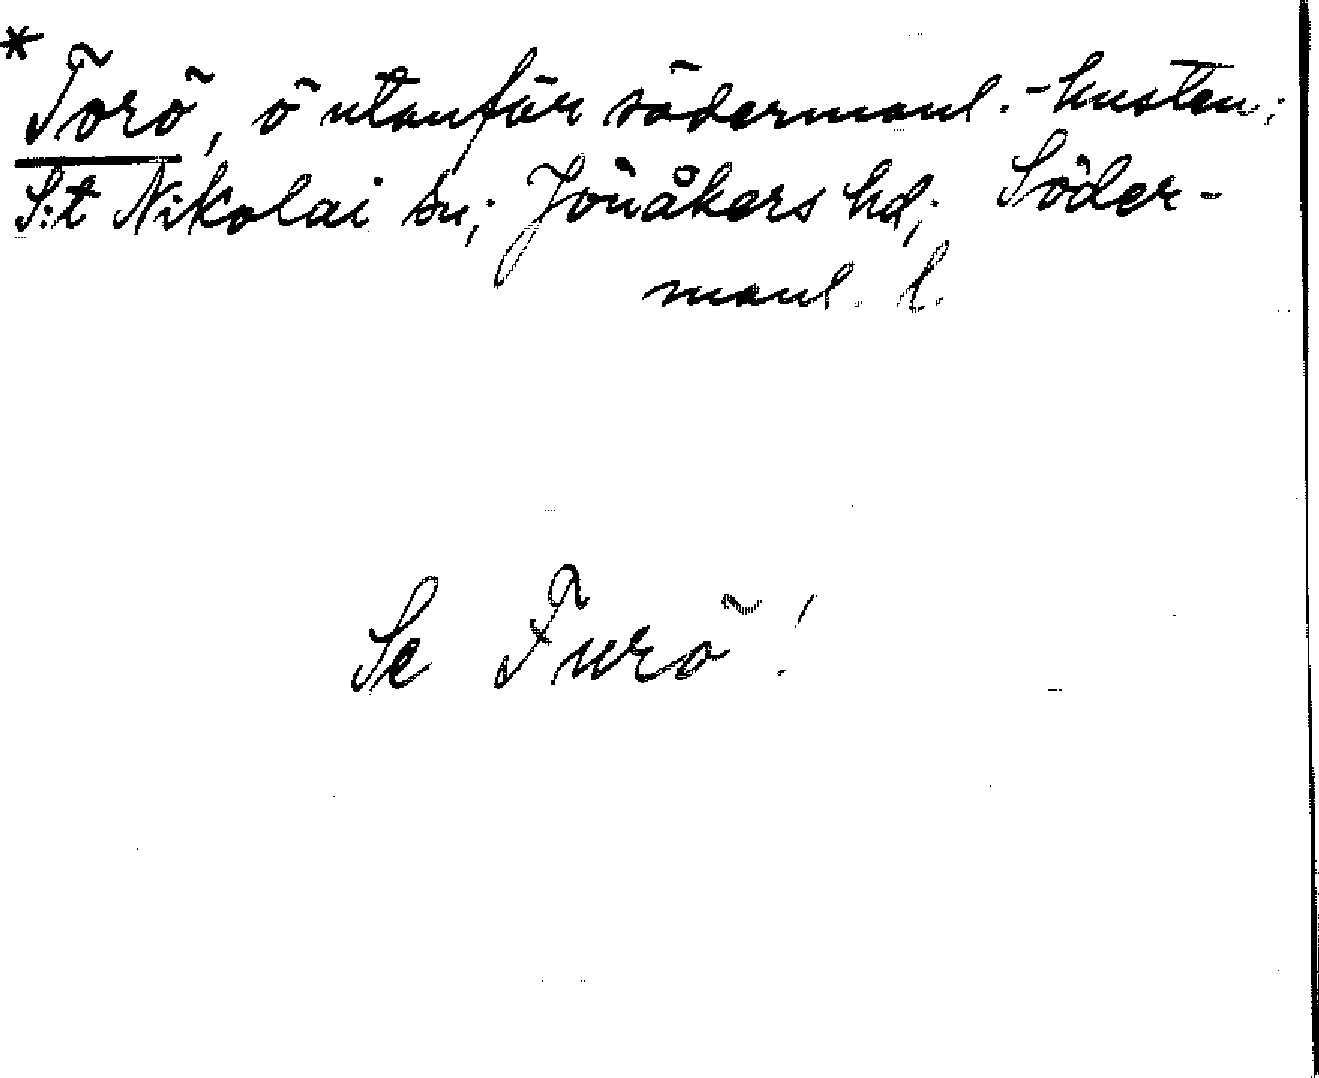 * Torö, ö utanför södermanl.-kusten;
S:t Nikolai sn; Jönåkers hd; Söder-
manl. l.
Se Turö!